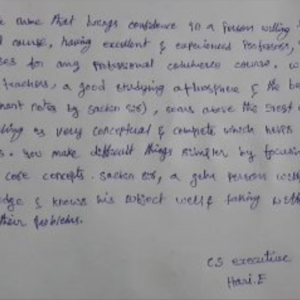 name that brings confidence in a person willing
course, having excellent & experienced Professors,
for any professional commerce course.
teachers, a good studying atmosphere & the be
notes by sachin sir), was above the
is very conceptual & complete which helps
. You make difficult things simpler by focusing
core concepts. sachin sir, a person with
& knows his subject well & taking
their problems.
CS executive
Hari.E